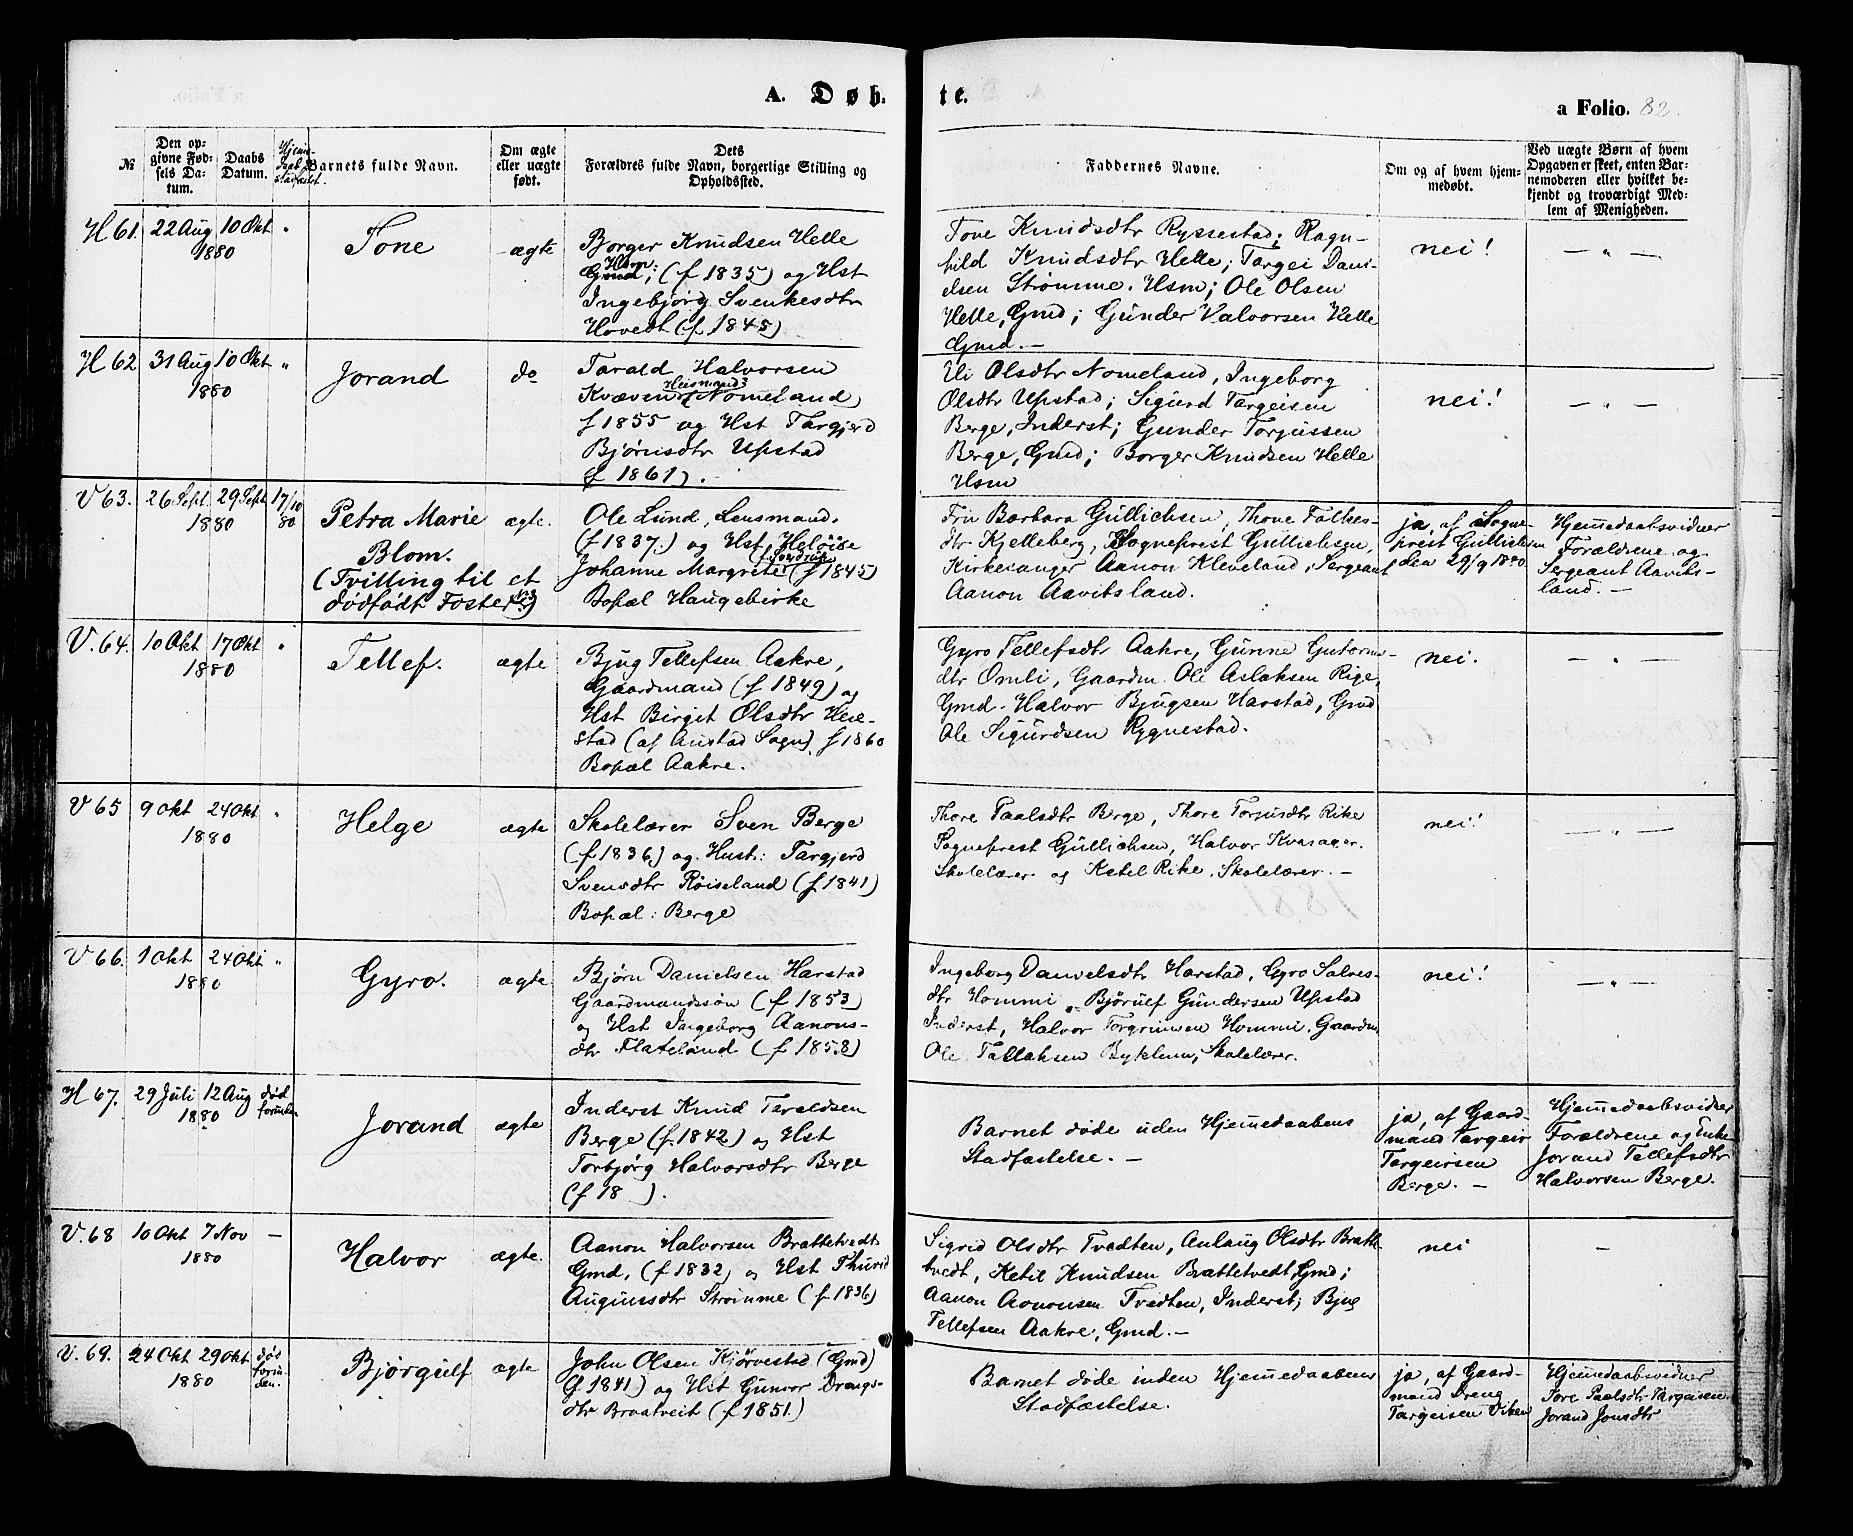 A. Døb-
te.
a Folio. 82.
№
Den op-
givne Fød-
sels Da-
tum.
Daabs
Datum.
Hjemme-
daab
stadfæstet.
Barnets fulde Navn.
Om ægte
eller uægte
født.
Dets
Forældres fulde Navn, borgerlige Stilling og
Opholdssted.
Faddernes Navne.
Om og af hvem hjem-
medøbt.
Ved uægte Børn af hvem
Opgaven er skeet, enten Bar-
nemoderen eller hvilket be-
kjendt og troværdigt Med-
lem af Menigheden.
H 61.
22 Aug
10 Okt
1880
"
Tone
ægte
Borger Knudsen Helle
Hsm:
Gmd, (f 1835) og Hst
Ingebjörg Svenkesdtr
Hovedt (f. 1845)
Tove Knudsdtr Ryssestad; Ragn-
hild Knudsdtr Helle; Targei Dani-
elsen Strømme. Hsm; Ole Olsen
Helle, Gmd; Gunder Halvorsen Helle
Gmd. -
nei!
- " -
H 62
31 Aug
10 Okt
1880
"
Jorand
do
Tarald Halvorsen
Huusmand
Kvæven (Nomeland)
f 1855 og Hst Targjerd
Bjørnsdtr Upstad
f 1861).
Uli Olsdtr Nomeland, Ingeborg
Olsdtr Upstad; Sigurd Targeisen
Berge, Inderst; Gunder Torjussen
Berge, Gmd; Borger Knudsen Helle
Hsm
nei!
- " -
V 63.
26 Sept
29 Sept
1880
17/10
80
Petra Marie
Blom.
(Tvilling til et
dødfødt Foster)
ægte.
Ole Lund, Lensmand.
(f 1837.) og Hst, Heloise
Johanne Margrete (f 1845)
Bopæl Haugebirke
Fru Barbara Gullichsen, Thone Falkes-
dtr Kjelleberg, Sogneprest Gullichsen,
Kirkesanger Aanon Kleveland, Sergeant
Aanon Aavitsland.
ja, af Sogne-
prest Gullichsen
den 29/9 1880.
Hjemmedaabsvidner
Forældrene og
Sergeant Aavits-
land. -
V. 64.
10 Okt
17 Okt
1880
"
Tellef.
ægte
Bjug Tellefsen Aakre,
Gaardmand (f 1849) og
Hst Birgit Olsdtr Hei-
stad (af Austad Sogn) f 1860
Bopæl Aakre.
Gyro Tellefsdtr Aakre, Gunne Gutorms-
dtr Omli, Gaardm. Ole Aslaksen Rige,
Gmd. Halvor Bjugsen Harstad, Gmd
Ole Sigurdsen Rygnestad.
nei.
- " -
V 65
9 Okt
24 Okt
1880
"
Helge
ægte
Skolelærer Sven Berge
(f 1836) og Hust: Targjerd
Svensdtr Røiseland (f 1841)
Bopæl: Berge
Thore Paalsdtr Berge, Thore Torjusdtr Rike
Sogneprest Gullichsen, Halvor Kvasager.
Skolelærer og Ketel Rike. Skolelærer. -
nei!
- " -
V 66.
1 Okt
24 Okt
1880
"
Gyro.
ægte
Bjørn Danielsen Harstad
Gaardmandssøn (f 1853)
og Hst Ingeborg Aanons-
dtr Flateland (f 1858)
Ingeborg Danielsdtr Harstad, Gyro Salves-
dtr Hommi, Bjørulf Gundersen Upstad
Inderst, Halvor Torgrimsen Hommi, Gaardm.
Ole Tallaksen Byklum, Skolelærer.
nei!
- " -
H 67.
29 Juli
12 Aug
1880
død
forinden
Jorand
ægte
Inderst Knud Taraldsen
Berge (f. 1842) og Hst
Torbjørg Halvorsdtr Berge
(f 18 ).
Barnet døde uden Hjemmedaabens
Stadfæstelse. -
ja, af Gaard-
mand Targeir
Targeirsen
Berge. -
Hjemmedaabsvidner
Forældrene og Enke
Jorand Tellefsdtr
Halvorsen Berge.
V. 68
10 Okt
7 Nov
1880
-
Halvor
ægte.
Aanon Halvorsen Brattetvedt
Gmd, (f 1832) og Hst Thurid
Augunsdtr Strømme (f 1836)
Sigrid Olsdtr Tvedten, Anlaug Olsdtr Bratte-
tvedt, Ketil Knudsen Brattetvedt, Gmd;
Aanon Aanonsen Tvedten, Inderst; Bjug
Tellefsen Aakre, Gmd. -
nei
-
V. 69.
24 Okt
29 Okt
1880
død
forin-
den.
Bjørgulf
ægte
John Olsen Kjørvestad (Gmd)
(f 1841) og Hst Gunvor Drengs-
dtr Braatveit (f 1851.)
Barnet døde inden Hjemmedaabens
Stadfæstelse.
ja, af Gaard-
mand Dreng
Targeisen Viken
Hjemmedaabsvidner
Tore Paalsdtr Targeisen
Jorand Jonsdtr